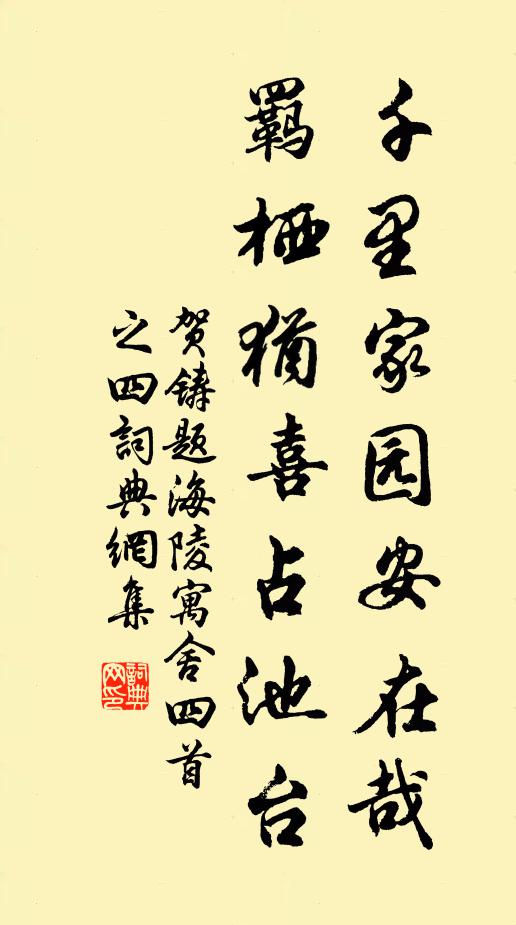 千里家园安在哉
羁栖犹喜占池台
贺铸题海陵寓舍四首
之四词典網集
詞典網印